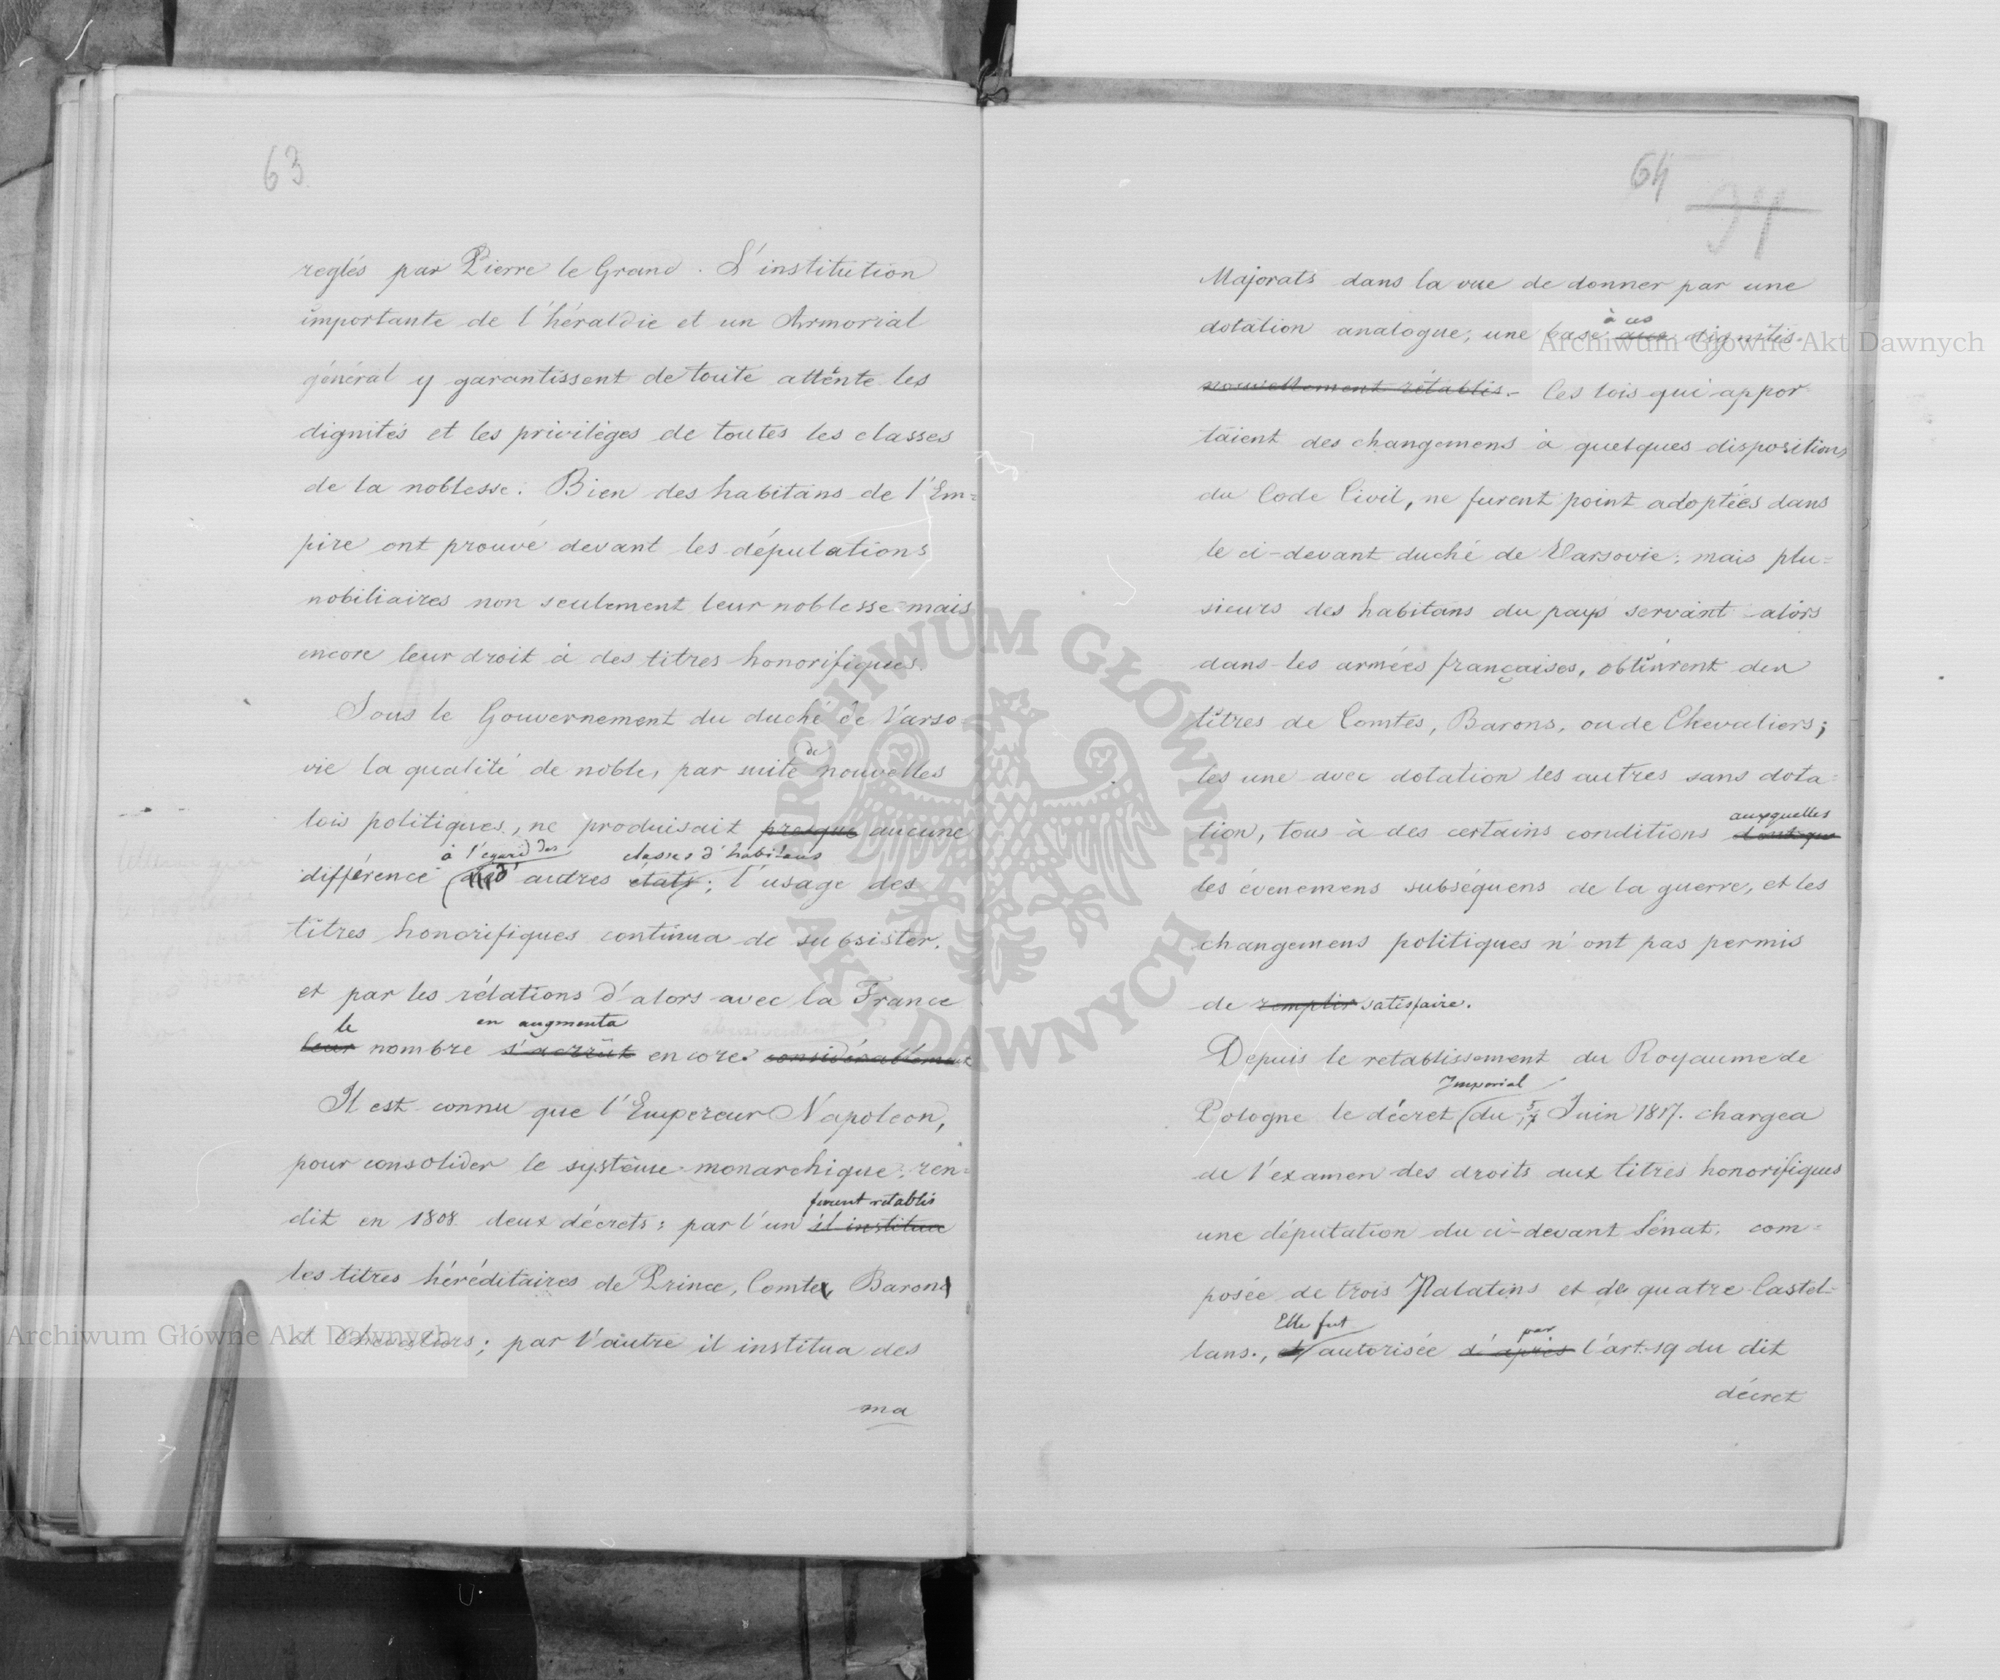 63
reglés par Pierre le Grand. L'institution
importante de l'héraldie et un Armorial
général y garantissent de toute attente les
dignités et les privilèges de toutes les classes
de la noblesse. Bien des habitans de l'Em=
pire ont prouvé devant les députations
nobiliaires non seulement leur noblesse mais
encore leur droit à des titres honorifiques.
Sous le Gouvernement du duché de Varso=
de
vie la qualité de noble, par suite nouvelles
lois politiques, ne produisait presque aucune
à l'egard des classes d'habitans
différence d'autres états; l'usage des
titres honorifiques continua de subsister.
et par les rélations d'alors avec la France
le en augmenta
leur nombre s'accrût encore. considérablement
Il est connu que l'Empereur Napoleon,
pour consolider le système monarchique, ren=
furent retablis
dit en 1808 deux décrets: par l'un il institua
les titres héréditaires de Prince, Comte, Baron
et Chevaliers; par l'autre il institua des
ma
64
94
Majorats dans la vue de donner par une
à ces
dotation analogue, une base aux dignités.
nouvellement rétablis. Ces lois qui appor
taient des changemens à quelques dispositions
du Code Civil, ne furent point adoptées dans
le ci-devant duché de Varsovie; mais plu=
sieurs des habitans du pays servant alors
dans les armées françaises, obtinrent des
titres de Comtes, Barons, ou de Chevaliers;
les une avec dotation les autres sans dota=
auxquelles
tion, tous à des certains conditions dont que
les évenemens subséquens de la guerre, et les
changemens politiques n'ont pas permis
de remplir satisfaire.
Depuis le retablissement du Royaume de
Imperial
Pologne le décret du 5/17 Juin 1817. chargea
de l'examen des droits aux titres honorifiques
une députation du ci-devant Sénat, com=
posée de trois Palatins et de quatre Castel=
Elle fut par
lans., autorisée d'après l'art. 19 du dit
décret
Archiwum Główne Akt Dawnych
Archiwum Główne Akt Dawnych
ARCHIWUM GŁÓWNE AKT DAWNYCH